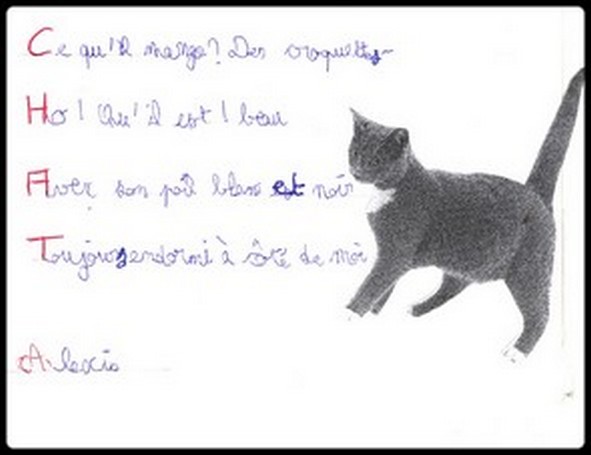 Ce qu'il mange? Des croquettes
Ho! Qu'il est! beau
Avec son poil blanc et noir
Toujours endormi à côté de moi
Alexis